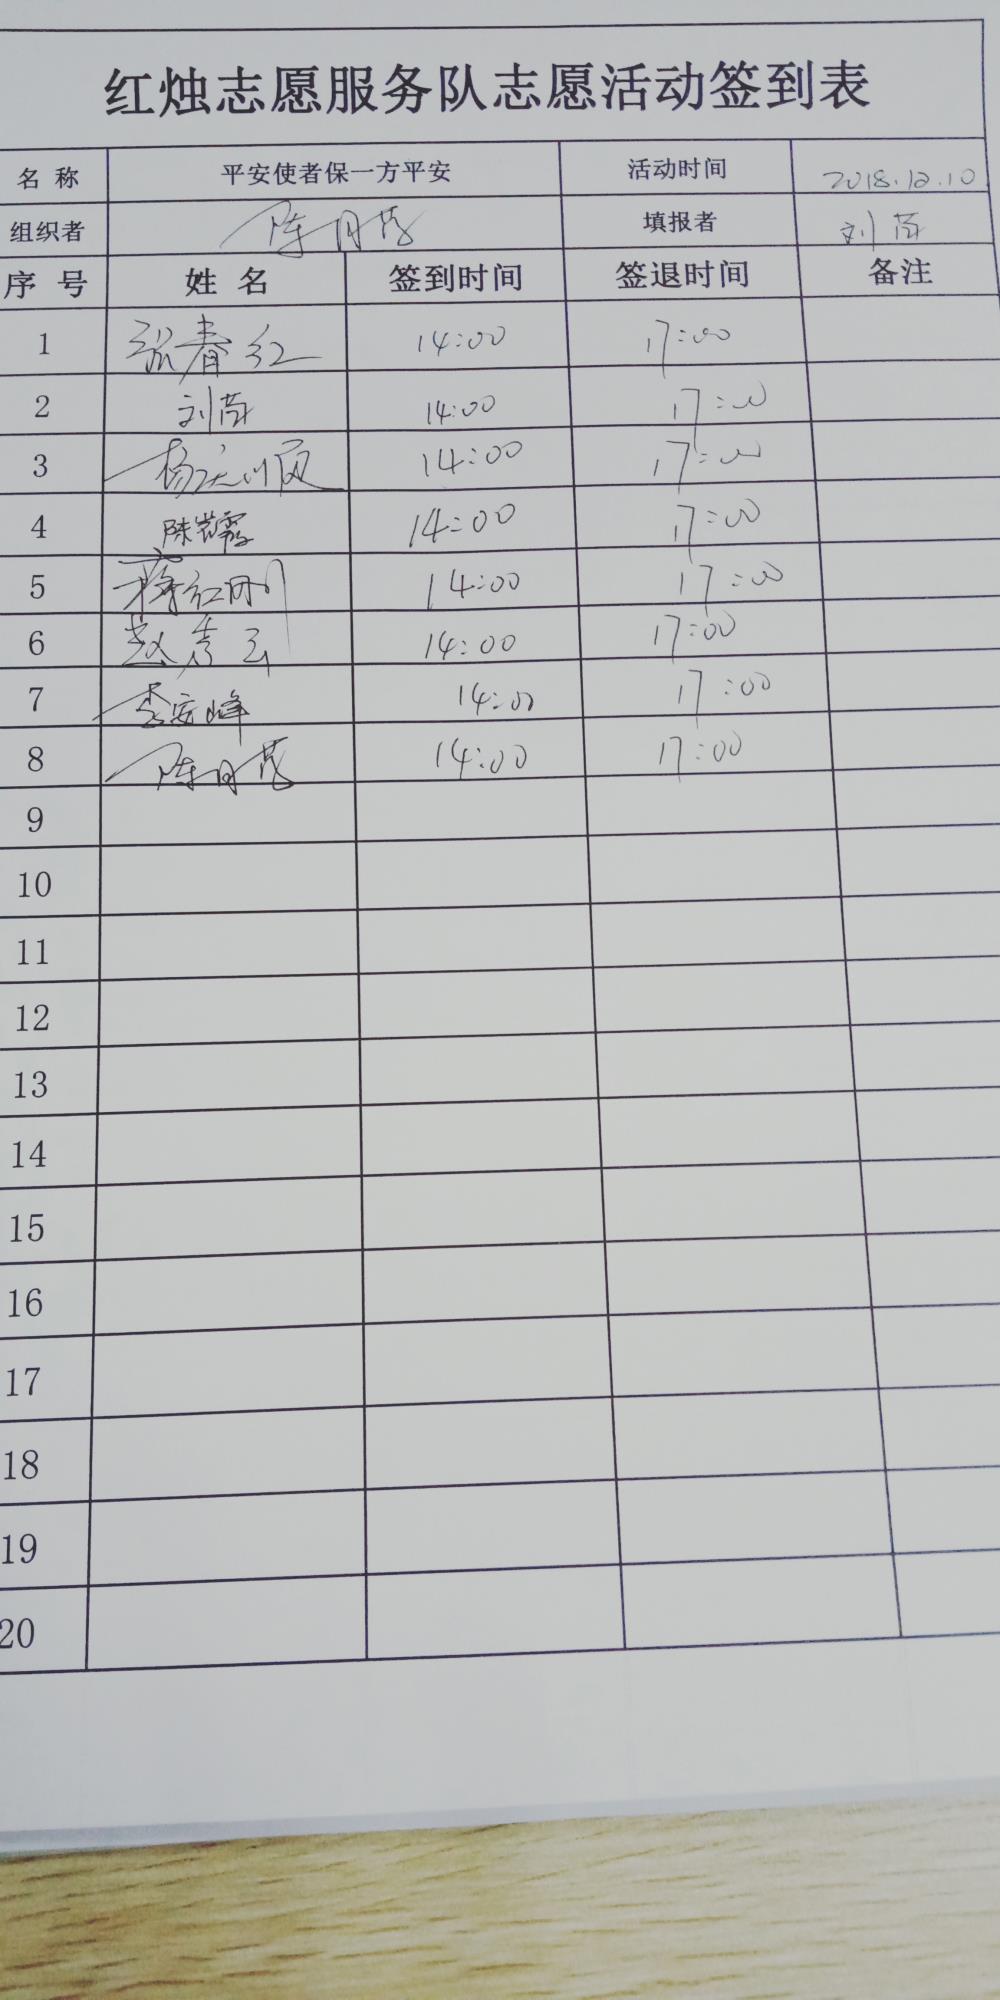 红烛志愿服务队志愿活动签到表
名 称 平安使者保一方平安 活动时间 2018.12.10
组织者 陈月茂 填报者 刘芮
序 号 姓 名 签到时间 签退时间 备注
1 张春红 14:00 17:00
2 刘芮 14:00 17:00
3 杨 14:00 17:00
4 陈岩霞 14:00 17:00
5 蒋红刚 14:00 17:00
6 赵秀云 14:00 17:00
7 李安峰 14:00 17:00
8 陈月茂 14:00 17:00
9
10
11
12
13
14
15
16
17
18
19
20